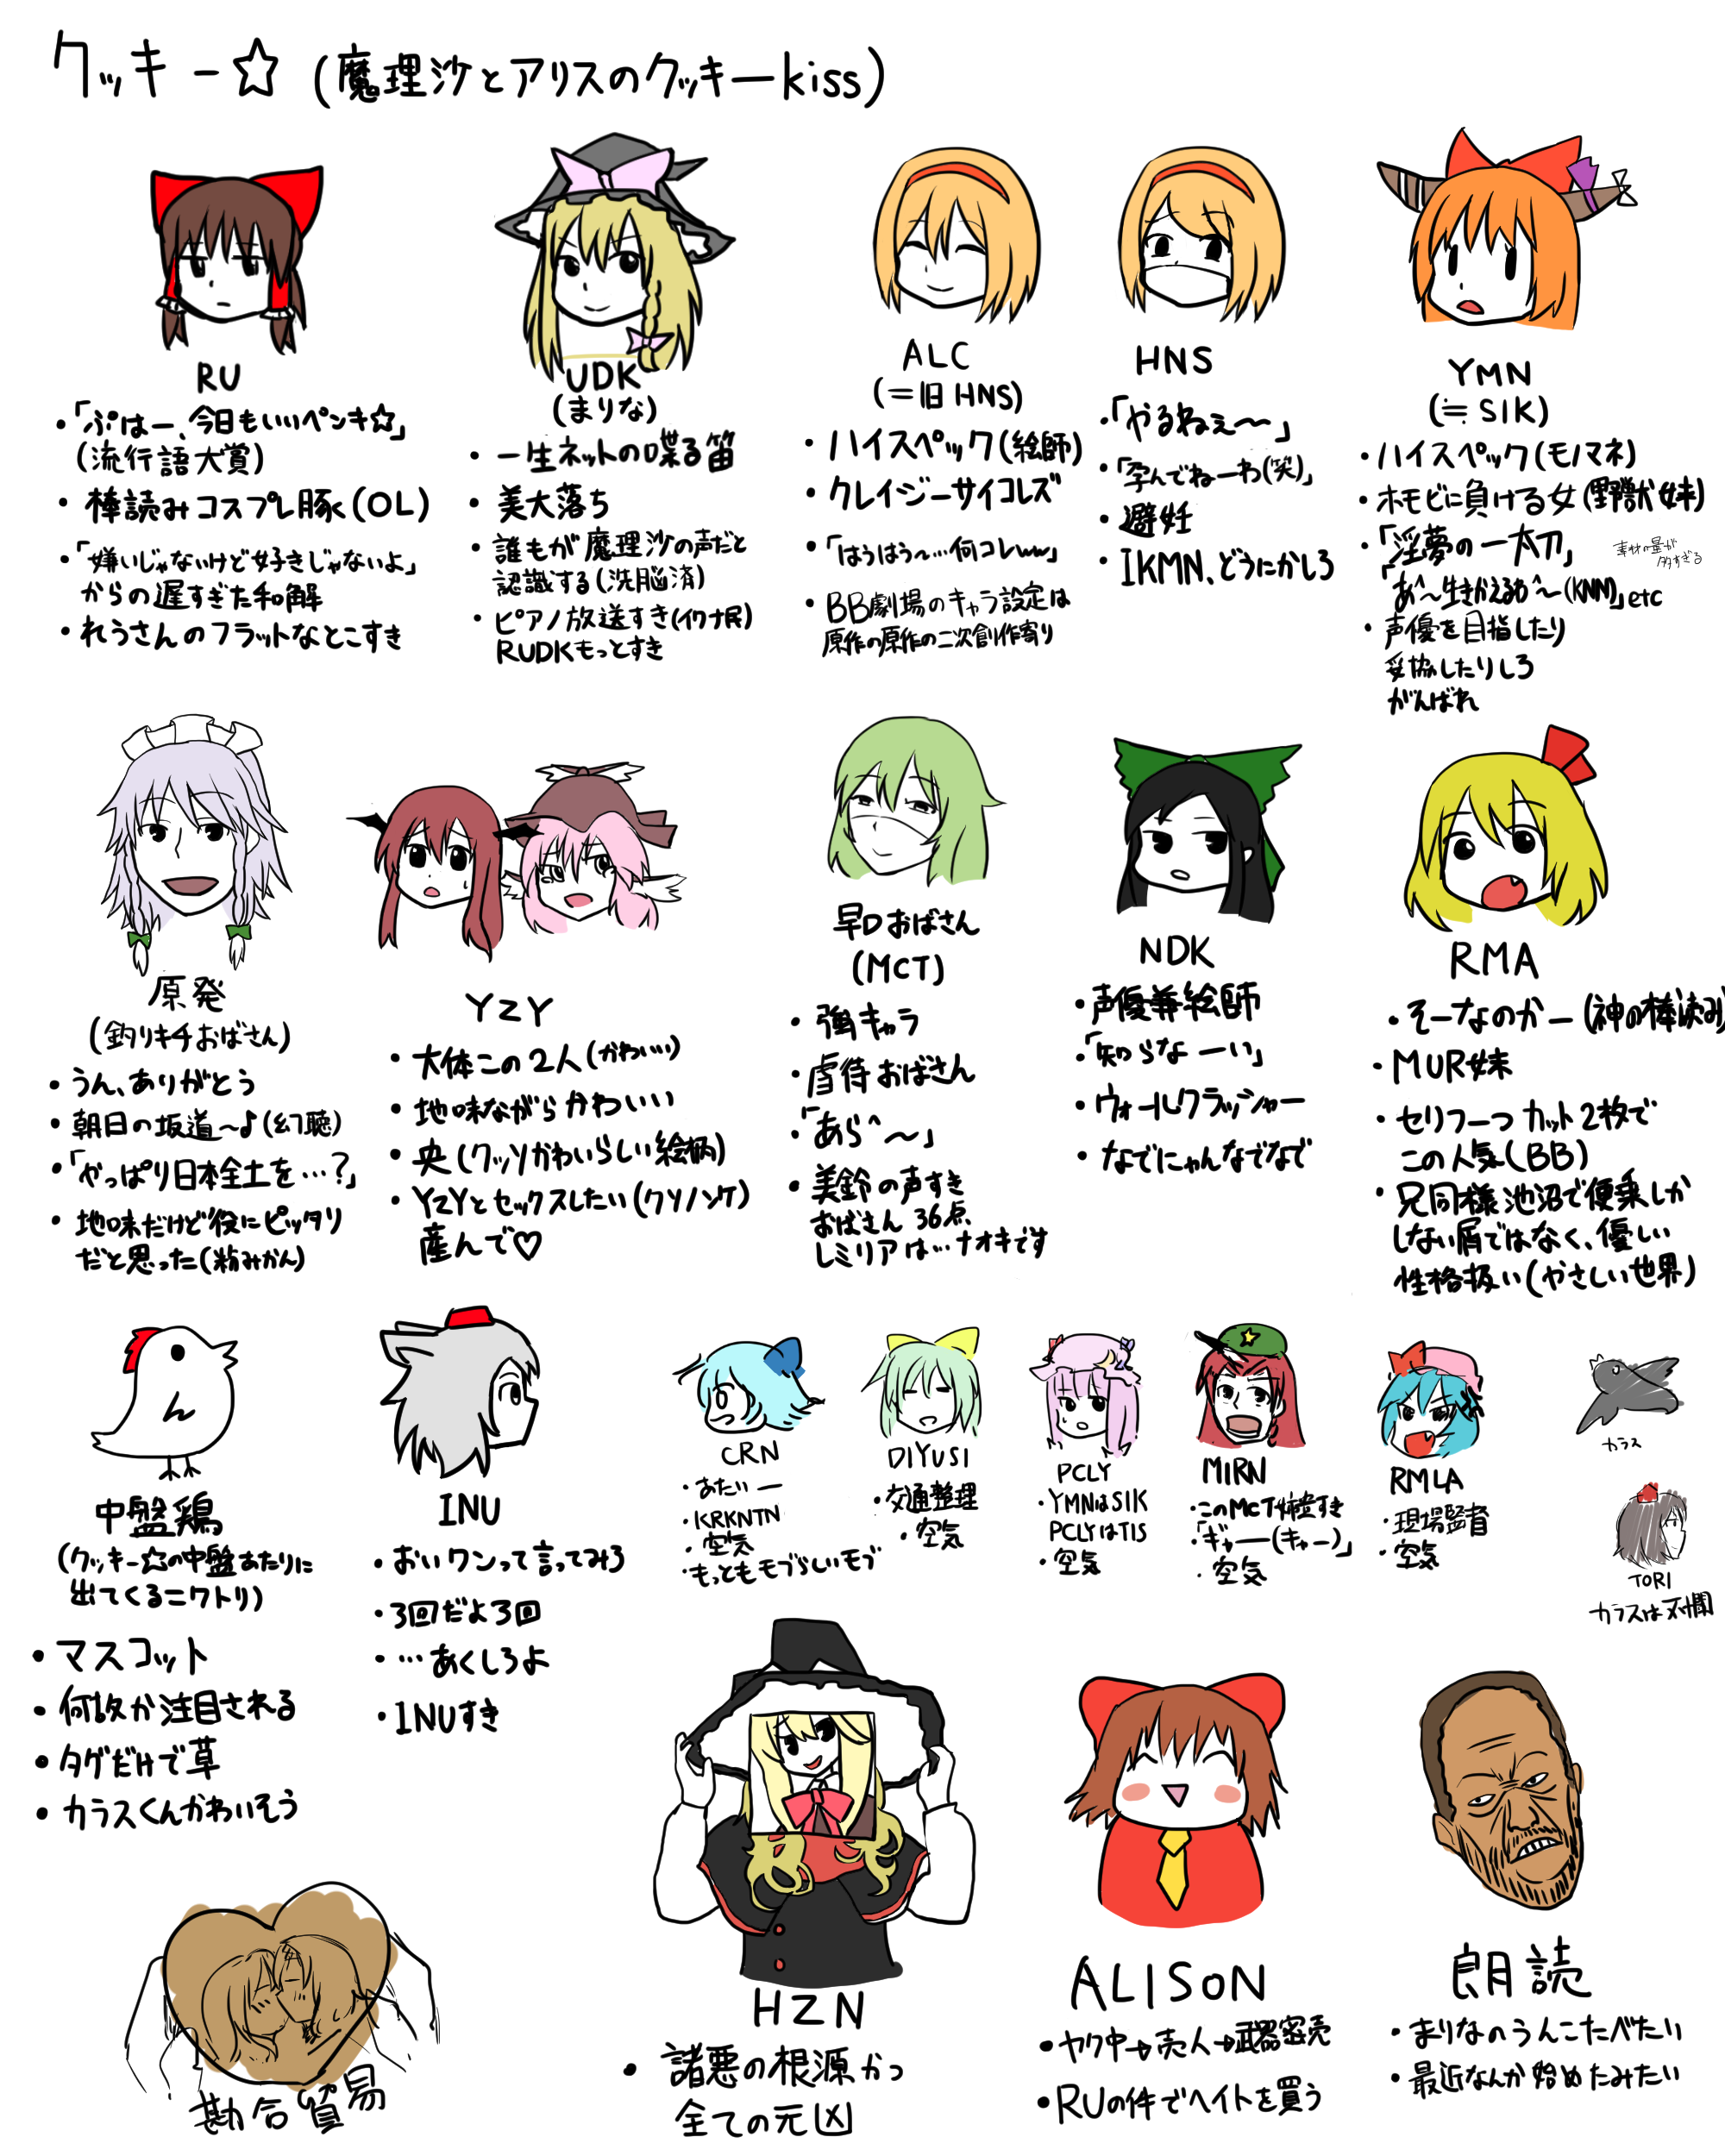 クッキー☆ (魔理沙とアリスのクッキーkiss)
RU
・「ぷはー、今日もいいペンキ☆」
(流行語大賞)
・棒読みコスプレ豚(OL)
・「嫌いじゃないけど好きじゃないよ」
からの遅すぎた和解
・れうさんのフラットなとこすき
UDK
(まりな)
・一生ネットの喋る笛
・美大落ち
・誰もが魔理沙の声だと
認識する(洗脳済)
・ピアノ放送すき(イワナ民)
RUDKもっとすき
ALC
(=旧HNS)
・ハイスペック(絵師)
・クレイジーサイコレズ
・「はうはう〜…何コレww」
・BB劇場のキャラ設定は
原作の原作の二次創作寄り
HNS
・「やるねぇ〜」
・「孕んでねーわ(笑)」
・避妊
・IKMN、どうにかしろ
YMN
(≒SIK)
・ハイスペック(モノマネ)
・ホモビに負ける女(野獣妹)
・「淫夢の一太刀」
素材の量が
多すぎる
「あ^〜生きかえるわ^〜(KNN)」etc
・声優を目指したり
妥協したりしろ
がんばれ
原発
(釣りキチおばさん)
・うん、ありがとう
・朝日の坂道〜♪(幻聴)
・「やっぱり日本全土を…?」
・地味だけど役にピッタリ
だと思った(粕みかん)
YZY
・大体この2人(かわいい)
・地味ながらかわいい
・央(クッソかわいらしい絵柄)
・YZYとセックスしたい(クソノンケ)
産んで♡
早口おばさん
(MCT)
・強キャラ
・虐待おばさん
・「あら^〜」
・美鈴の声すき
おばさん 36点、
レミリアは…ナオキです
NDK
・声優兼絵師
・「知らなーい」
・ウォールクラッシャー
・なでにゃんなでなで
RMA
・そーなのかー(神の棒読み)
・MUR妹
・セリフ一つカット2枚で
この人気(BB)
・兄同様池沼で便乗しか
しない屑ではなく、優しい
性格扱い(やさしい世界)
中盤鶏
(クッキー☆の中盤あたりに
出てくるニワトリ)
・マスコット
・何故か注目される
・タグだけで草
・カラスくんかわいそう
INU
・おいワンって言ってみろ
・3回だよ3回
・…あくしろよ
・INUすき
CRN
・あたいー
・KRKNTN
・空気
・もっともモブらしいモブ
DIYUSI
・交通整理
・空気
PCLY
・YMNはSIK
PCLYはTIS
・空気
MIRN
・このMCT姉貴すき
・「ギャー(キャー)」
・空気
RMLA
・現場監督
・空気
カラス
TORI
カラスは不憫
勘合貿易
HZN
・諸悪の根源かつ
全ての元凶
ALISON
・ヤク中→売人→武器密売
・RUの件でヘイトを買う
朗読
・まりなのうんこたべたい
・最近なんか始めたみたい